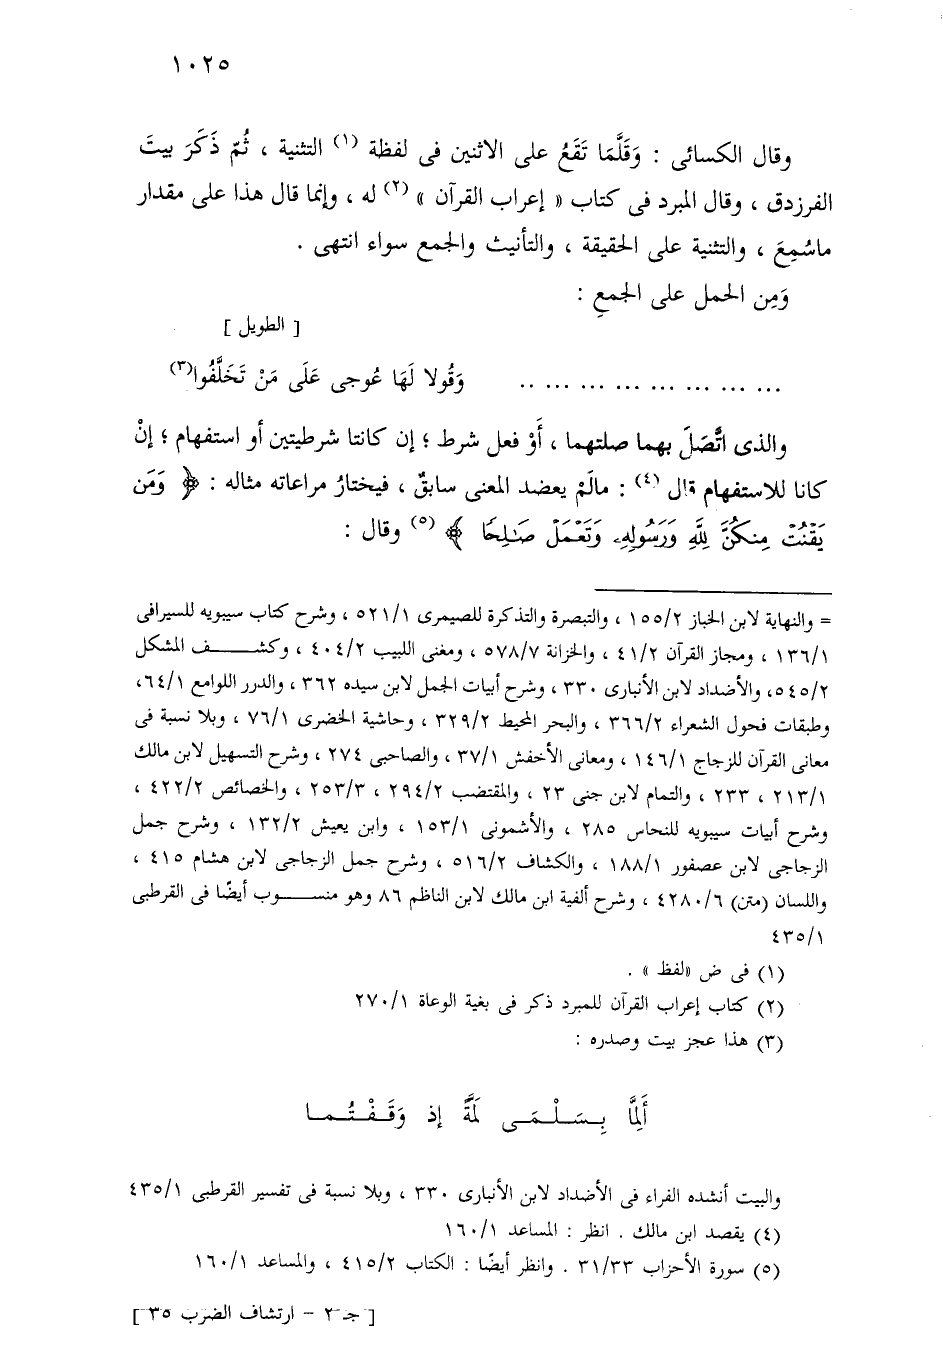 ١٠٢٥
وقال الكسائى : وَقَلَّمَا تَقَعُ على الاثنين فى لفظة (١) التثنية ، ثُمّ ذَكَرَ بيتَ
الفرزدق ، وقال المبرد فى كتاب « إعراب القرآن » (٢) له ، وإنما قال هذا على مقدار
ماسُمِعَ ، والتثنية على الحقيقة ، والتأنيث والجمع سواء انتهى .
وَمِن الحمل على الجمعِ :
[ الطويل ]
... ... ... ... ... ... ... .. وَقُولا لَهَا عُوجى عَلَى مَنْ تَخَلَّفُوا(٣)
والذى اتَّصَلَ بهما صلتهما ، أَوْ فعل شرط ؛ إن كانتا شرطيتين أو استفهام ؛ إنْ
كانا للاستفهام قال (٤) : مالَمْ يعضد المعنى سابقٌ ، فيختارُ مراعاته مثاله : ﴿ وَمَن
يَقْنُتْ مِنكُنَّ لِلَّهِ وَرَسُولِهِۦ وَتَعْمَلْ صَـٰلِحًا ﴾ (٥) وقال :
= والنهاية لابن الخباز ١٥٥/٢ ، والتبصرة والتذكرة للصيمرى ٥٢١/١ ، وشرح كتاب سيبويه للسيرافى
١٣٦/١ ، ومجاز القرآن ٤١/٢ ، والخزانة ٥٧٨/٧ ، ومغنى اللبيب ٤٠٤/٢ ، وكشف المشكل
٥٤٥/٢، والأضداد لابن الأنبارى ٣٣٠ ، وشرح أبيات الجمل لابن سيده ٣٦٢ ، والدرر اللوامع ٦٤/١،
وطبقات فحول الشعراء ٣٦٦/٢ ، والبحر المحيط ٣٢٩/٢ ، وحاشية الخضرى ٧٦/١ ، وبلا نسبة فى
معانى القرآن للزجاج ١٤٦/١ ، ومعانى الأخفش ٣٧/١ ، والصاحبى ٢٧٤ ، وشرح التسهيل لابن مالك
٢١٣/١ ، ٢٣٣ ، والتمام لابن جنى ٢٣ ، والمقتضب ٢٩٤/٢ ، ٢٥٣/٣ ، والخصائص ٤٢٢/٢ ،
وشرح أبيات سيبويه للنحاس ٢٨٥ ، والأشمونى ١٥٣/١ ، وابن يعيش ١٣٢/٢ ، وشرح جمل
الزجاجى لابن عصفور ١٨٨/١ ، والكشاف ٥١٦/٢ ، وشرح جمل الزجاجى لابن هشام ٤١٥ ،
واللسان (متن) ٤٢٨٠/٦ ، وشرح ألفية ابن مالك لابن الناظم ٨٦ وهو منسوب أيضًا فى القرطبى
٤٣٥/١
(١) فى ض «لفظ » .
(٢) كتاب إعراب القرآن للمبرد ذكر فى بغية الوعاة ٢٧٠/١
(٣) هذا عجز بيت وصدره :
أَلِمَّا بِسَلْمَى لَمَّةً إذ وَقَفْتُما
والبيت أنشده الفراء فى الأضداد لابن الأنبارى ٣٣٠ ، وبلا نسبة فى تفسير القرطبى ٤٣٥/١
(٤) يقصد ابن مالك . انظر : المساعد ١٦٠/١
(٥) سورة الأحزاب ٣١/٣٣ . وانظر أيضًا : الكتاب ٤١٥/٢ ، والمساعد ١٦٠/١
[ جـ ٢ - ارتشاف الضرب ٣٥ ]